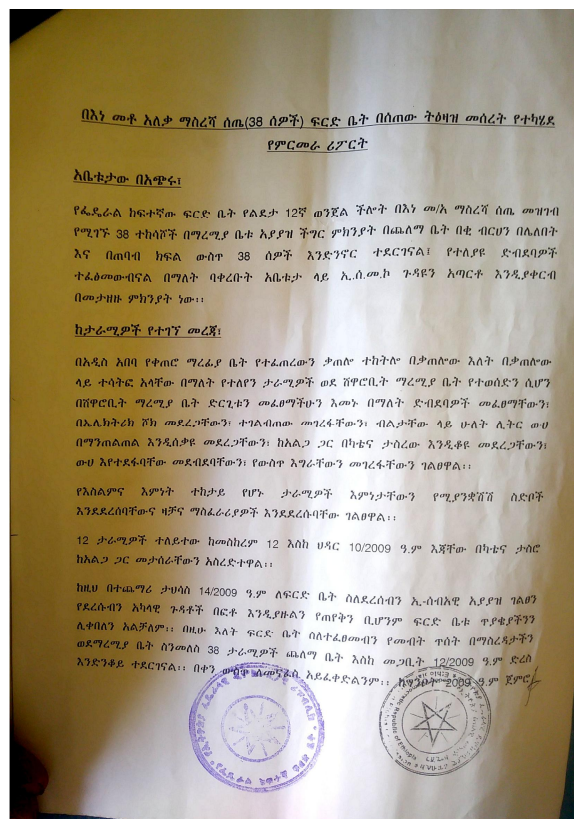 በእነ መቶ አለቃ ማስረሻ ሰጤ(38 ሰዎች) ፍርድ ቤት በሰጠው ትዕዛዝ መሰረት የተካሄደ
የምርመራ ሪፖርት
አቤቱታው በአጭሩ፤
የፌዴራል ከፍተኛው ፍርድ ቤት የልደታ 12ኛ ወንጀል ችሎት በእነ መ/አ ማስረሻ ሰጤ መዝገብ
የሚገኙ 38 ተከሳሾች በማረሚያ ቤቱ አያያዝ ችግር ምክንያት በጨለማ ቤት በቂ ብርሀን በሌለበት
እና በጠባብ ክፍል ውስጥ 38 ሰዎች እንድንኖር ተደርገናል፤ የተለያዩ ድብደባዎች
ተፈፅመውብናል በማለት ባቀረቡት አቤቱታ ላይ ኢ.ሰ.መ.ኮ ጉዳዩን አጣርቶ እንዲያቀርብ
በመታዘዙ ምክንያት ነው።
ከታራሚዎች የተገኘ መረጃ፤
በአዲስ አበባ የቀጠሮ ማረፊያ ቤት የተፈጠረውን ቃጠሎ ተከትሎ በቃጠሎው እለት በቃጠሎው
ላይ ተሳትፎ አላቸው በማለት የተለየን ታራሚዎች ወደ ሸዋሮቢት ማረሚያ ቤት የተወሰድን ሲሆን
በሸዋሮቢት ማረሚያ ቤት ድርጊቱን መፈፀማችሁን እመኑ በማለት ድብደባዎች መፈፀማቸውን፣
በኤሌክትሪክ ሾክ መደረጋቸውን፣ ተገልብጠው መገረፋቸውን፣ ብልታቸው ላይ ሁለት ሊትር ውሀ
በማንጠልጠል እንዲሰቃዩ መደረጋቸውን፣ ከአልጋ ጋር በካቴና ታስረው እንዲቆዩ መደረጋቸውን፣
ውሀ እየተደፋባቸው መደብደባቸውን፣ የውስጥ እግራቸውን መገረፋቸውን ገልፀዋል።
የእስልምና እምነት ተከታይ የሆኑ ታራሚዎች እምነታቸውን የሚያንቋሽሽ ስድቦች
እንደደረሰባቸውና ዛቻና ማስፈራሪያዎች እንደደረሱባቸው ገልፀዋል።
12 ታራሚዎች ተለይተው ከመስከረም 12 እስከ ህዳር 10/2009 ዓ.ም እጃቸው በካቴና ታስሮ
ከአልጋ ጋር መታሰራቸውን አስረድተዋል።
ከዚህ በተጨማሪ ታህሳስ 14/2009 ዓ.ም ለፍርድ ቤት ስለደረሰብን ኢ-ሰብአዊ አያያዝ ገልፀን
የደረሱብን አካላዊ ጉዳቶች በፎቶ እንዲያዙልን የጠየቅን ቢሆንም ፍርድ ቤቱ ጥያቄያችንን
ሊቀበለን አልቻለም። በዚሁ እለት ፍርድ ቤት ስለተፈፀመብን የመብት ጥሰት በማስረዳታችን
ወደማረሚያ ቤት ስንመለስ 38 ታራሚዎች ጨለማ ቤት እስከ መጋቢት 12/2009 ዓ.ም ድረስ
እንድንቆይ ተደርገናል። በቀን ውስጥ ለመናፈስ አይፈቀድልንም። ከግንቦት 2009 ዓ.ም ጀምሮ